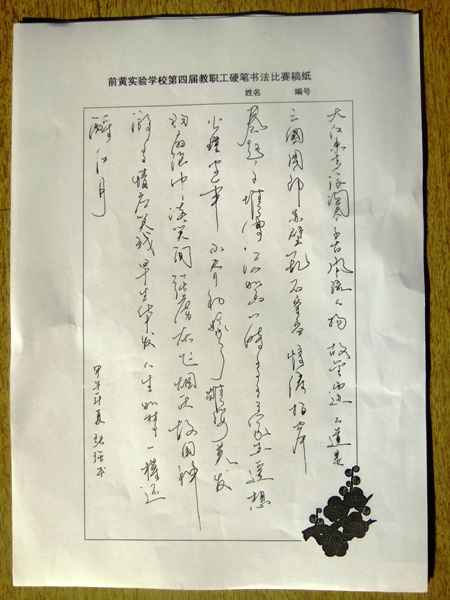 前黄实验学校第四届教职工硬笔书法比赛稿纸
姓名 编号
大江东去浪淘尽千古风流人物故垒西边人道是
三國周郎赤壁乱石穿空惊涛拍岸
卷起千堆雪江山如画一时多少豪杰遥想
公瑾当年小乔初嫁了雄姿英发
羽扇纶巾谈笑间强虏灰飞烟灭故国神
游多情应笑我早生华发人生如梦一樽还
酹江月
甲午年夏